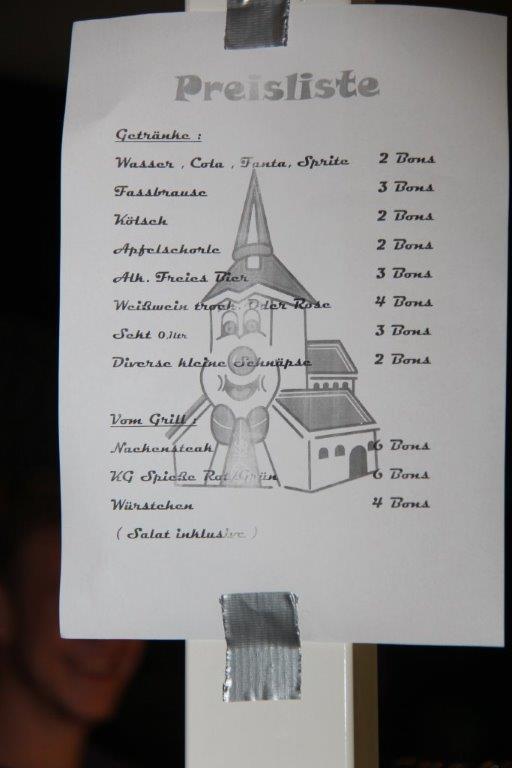 Preisliste
Getränke :
Wasser , Cola , Fanta, Sprite 2 Bons
Fassbrause 3 Bons
Kölsch 2 Bons
Apfelschorle 2 Bons
Alk. Freies Bier 3 Bons
Weißwein trock. Oder Rose 4 Bons
Sekt 0,1ltr 3 Bons
Diverse kleine Schnäpse 2 Bons
Vom Grill :
Nackensteak 6 Bons
KG Spieße Rot/Grün 6 Bons
Würstchen 4 Bons
( Salat inklusive )